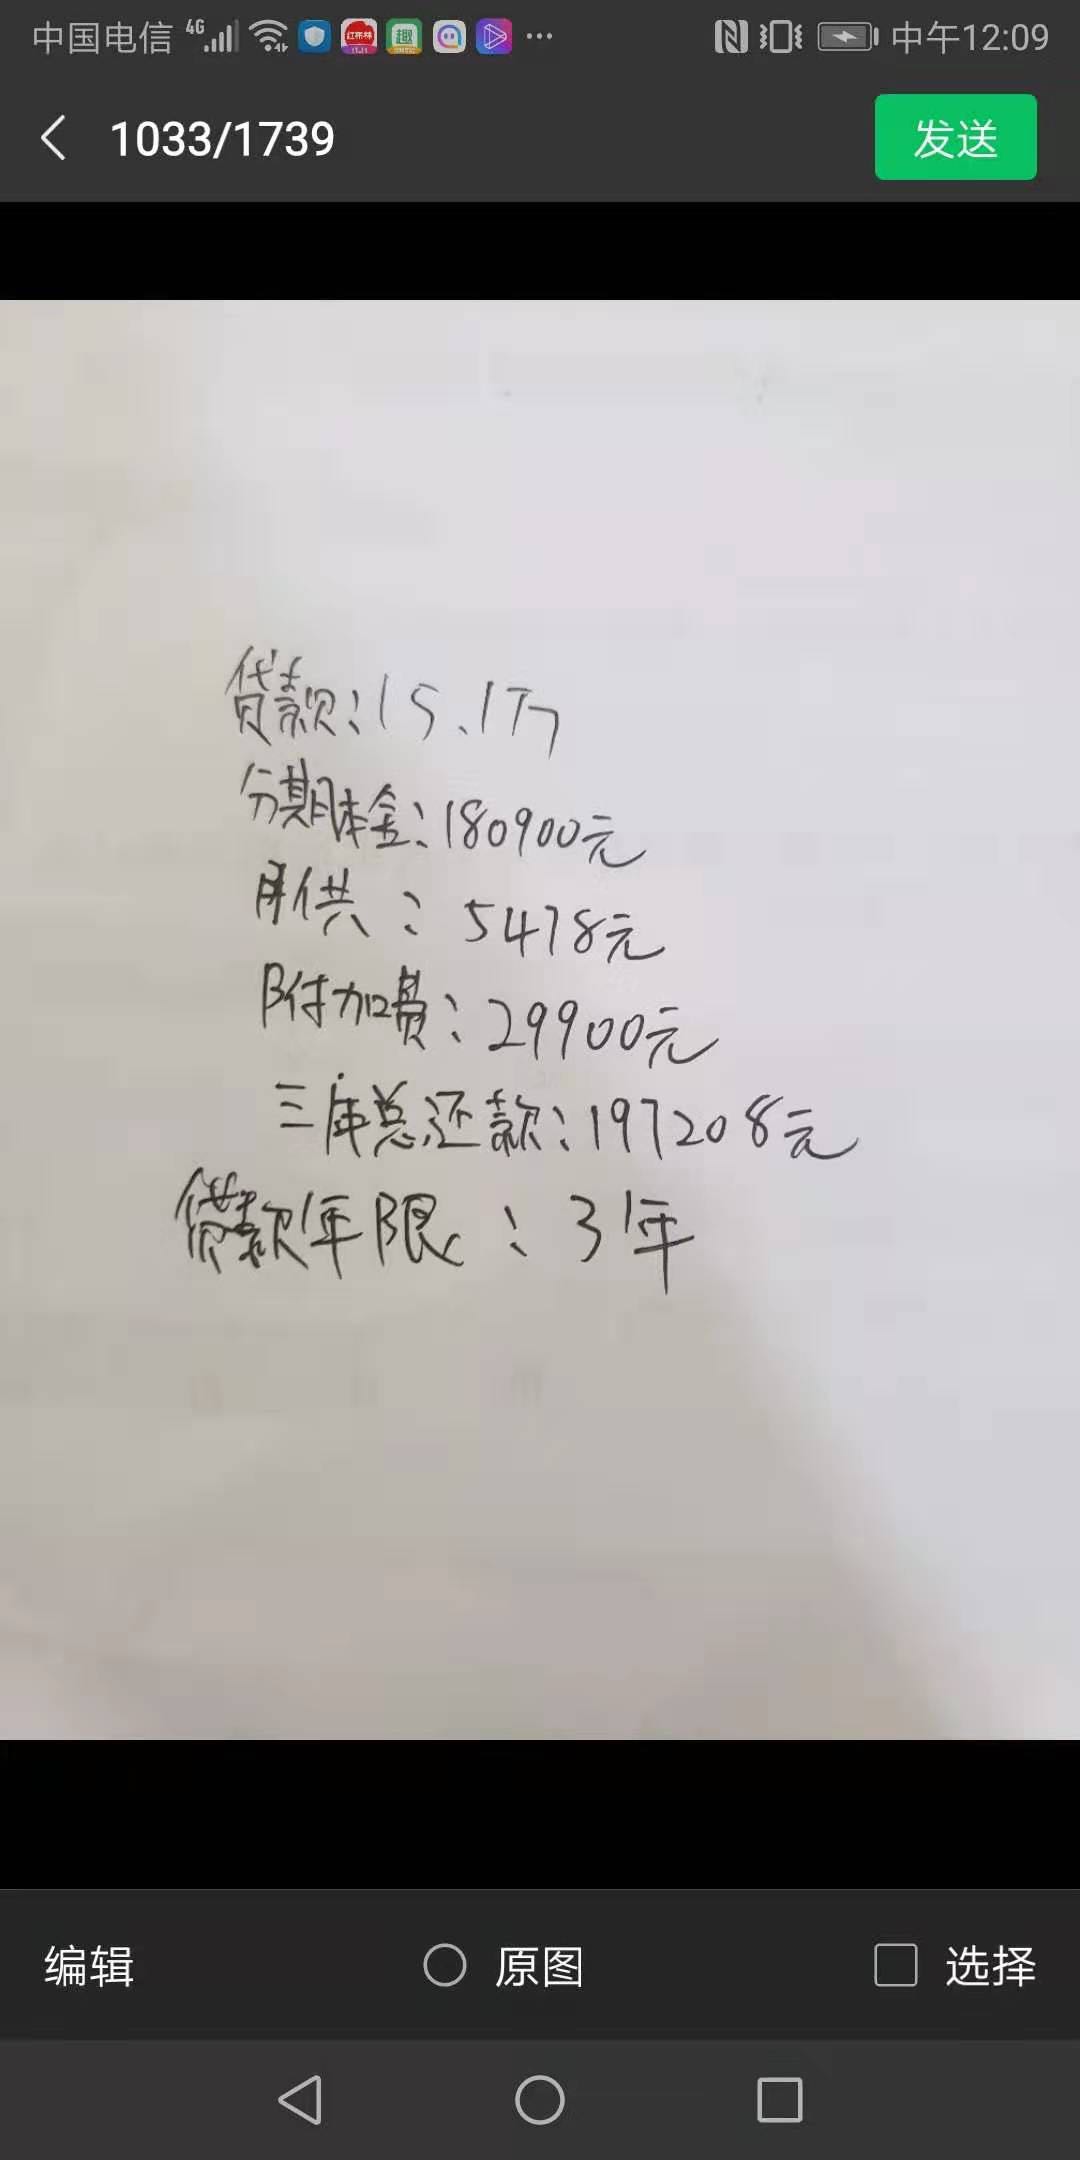 中国电信 4G 中午12:09
1033/1739 发送
贷款:15.1万
分期本金:180900元
月供:5478元
附加费:29900元
三年总还款:197208元
贷款年限:3年
编辑 原图 选择